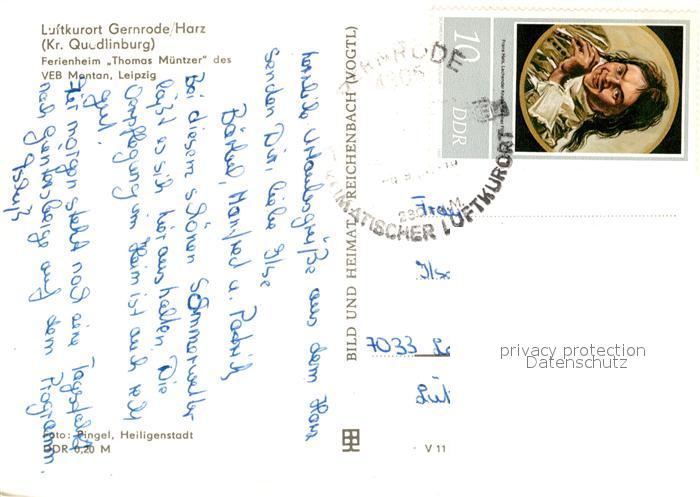 Luftkurort Gernrode/Harz
(Kr. Quedlinburg)
Ferienheim „Thomas Müntzer" des
VEB Montan, Leipzig
herzliche Urlaubsgrüße aus dem Harz
senden Dir, liebe Ilse
Bärbel, Manfred u. Patrick
Bei diesem schönen Sommerwetter
läßt es sich hier aushalten. Die
Verpflegung im Heim ist auch sehr
gut.
Für morgen steht noch eine Tagesfahrt
nach auf dem Programm.
Foto: Pingel, Heiligenstadt
DDR 0,20 M
BILD UND HEIMAT REICHENBACH (VOGTL)
V 11
10
DDR
KLIMATISCHER LUFTKURORT
Frau
Ilse
7033 Le
Lüt
privacy protection
Datenschutz